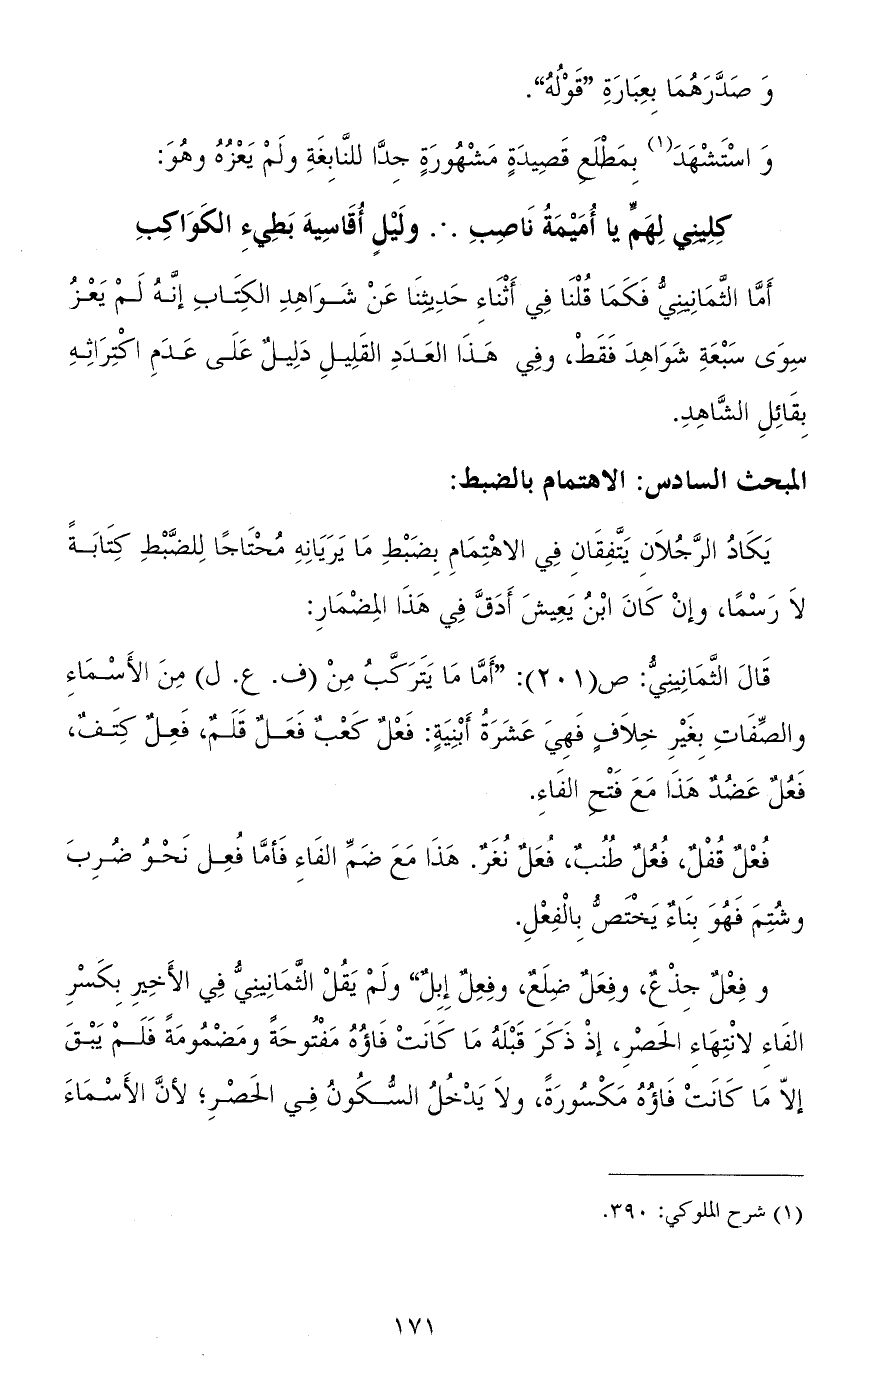 وَ صَدَّرَهُمَا بِعِبَارَةِ "قَوْلُهُ".
وَ اسْتَشْهَدَ(١) بِمَطْلَعِ قَصِيدَةٍ مَشْهُورَةٍ جِدًّا لِلنَّابِغَةِ ولَمْ يَعْزُهُ وهُوَ:
كِلِينِي لِهَمٍّ يا أُمَيْمَةُ نَاصِبِ .∙. ولَيْلٍ أُقَاسِيهَ بَطِيءِ الكَوَاكِبِ
أَمَّا الثَّمَانِينِيُّ فَكَمَا قُلْنَا فِي أَثْنَاءِ حَدِيثِنَا عَنْ شَوَاهِدِ الكِتَابِ إِنَّهُ لَمْ يَعْزُ
سِوَى سَبْعَةِ شَوَاهِدَ فَقَطْ، وفِي هَذَا العَدَدِ القَلِيلِ دَلِيلٌ عَلَى عَدَمِ اكْتِرَاثِهِ
بِقَائِلِ الشَّاهِدِ.
المبحث السادس: الاهتمام بالضبط:
يَكَادُ الرَّجُلاَنِ يَتَّفِقَانِ فِي الاهْتِمَامِ بِضَبْطِ مَا يَرَيَانِهِ مُحْتَاجًا لِلضَّبْطِ كِتَابَةً
لاَ رَسْمًا، وإنْ كَانَ ابْنُ يَعِيشَ أَدَقَّ فِي هَذَا المِضْمَارِ:
قَالَ الثَّمَانِينِيُّ: ص(٢٠١): "أَمَّا مَا يَتَرَكَّبُ مِنْ (ف. ع. ل) مِنَ الأَسْمَاءِ
والصِّفَاتِ بِغَيْرِ خِلاَفٍ فَهِيَ عَشَرَةُ أَبْنِيَةٍ: فَعْلٌ كَعْبٌ فَعَلٌ قَلَمٌ، فَعِلٌ كَتِفٌ،
فَعُلٌ عَضُدٌ هَذَا مَعَ فَتْحِ الفَاءِ.
فُعْلٌ قُفْلٌ، فُعُلٌ طُنُبٌ، فُعَلٌ نُغَرٌ. هَذَا مَعَ ضَمِّ الفَاءِ فَأمَّا فُعِل نَحْوُ ضُرِبَ
وشُتِمَ فَهُوَ بِنَاءٌ يَخْتَصُّ بِالْفِعْلِ.
و فِعْلٌ جِذْعٌ، وفِعَلٌ ضِلَعٌ، وفِعِلٌ إِبِلٌ" ولَمْ يَقُلْ الثَّمَانِينِيُّ فِي الأَخِيرِ بِكَسْرِ
الفَاءِ لانْتِهَاءِ الحَصْرِ، إِذْ ذَكَرَ قَبْلَهُ مَا كَانَتْ فَاؤُهُ مَفْتُوحَةً ومَضْمُومَةً فَلَمْ يَبْقَ
إلاّ مَا كَانَتْ فَاؤُهُ مَكْسُورَةً، ولاَ يَدْخُلُ السُّكُونُ فِي الحَصْرِ؛ لأنَّ الأَسْمَاءَ
(١) شرح الملوكي: ٣٩٠.
١٧١